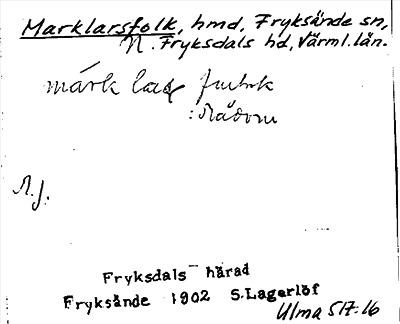 Marklarsfolk, hmd, Fryksände sn,
N. Fryksdals hd, Värml. län.
märk
N.J.
Fryksdals härad
Fryksände 1902 S.Lagerlöf
Ulma 517:16